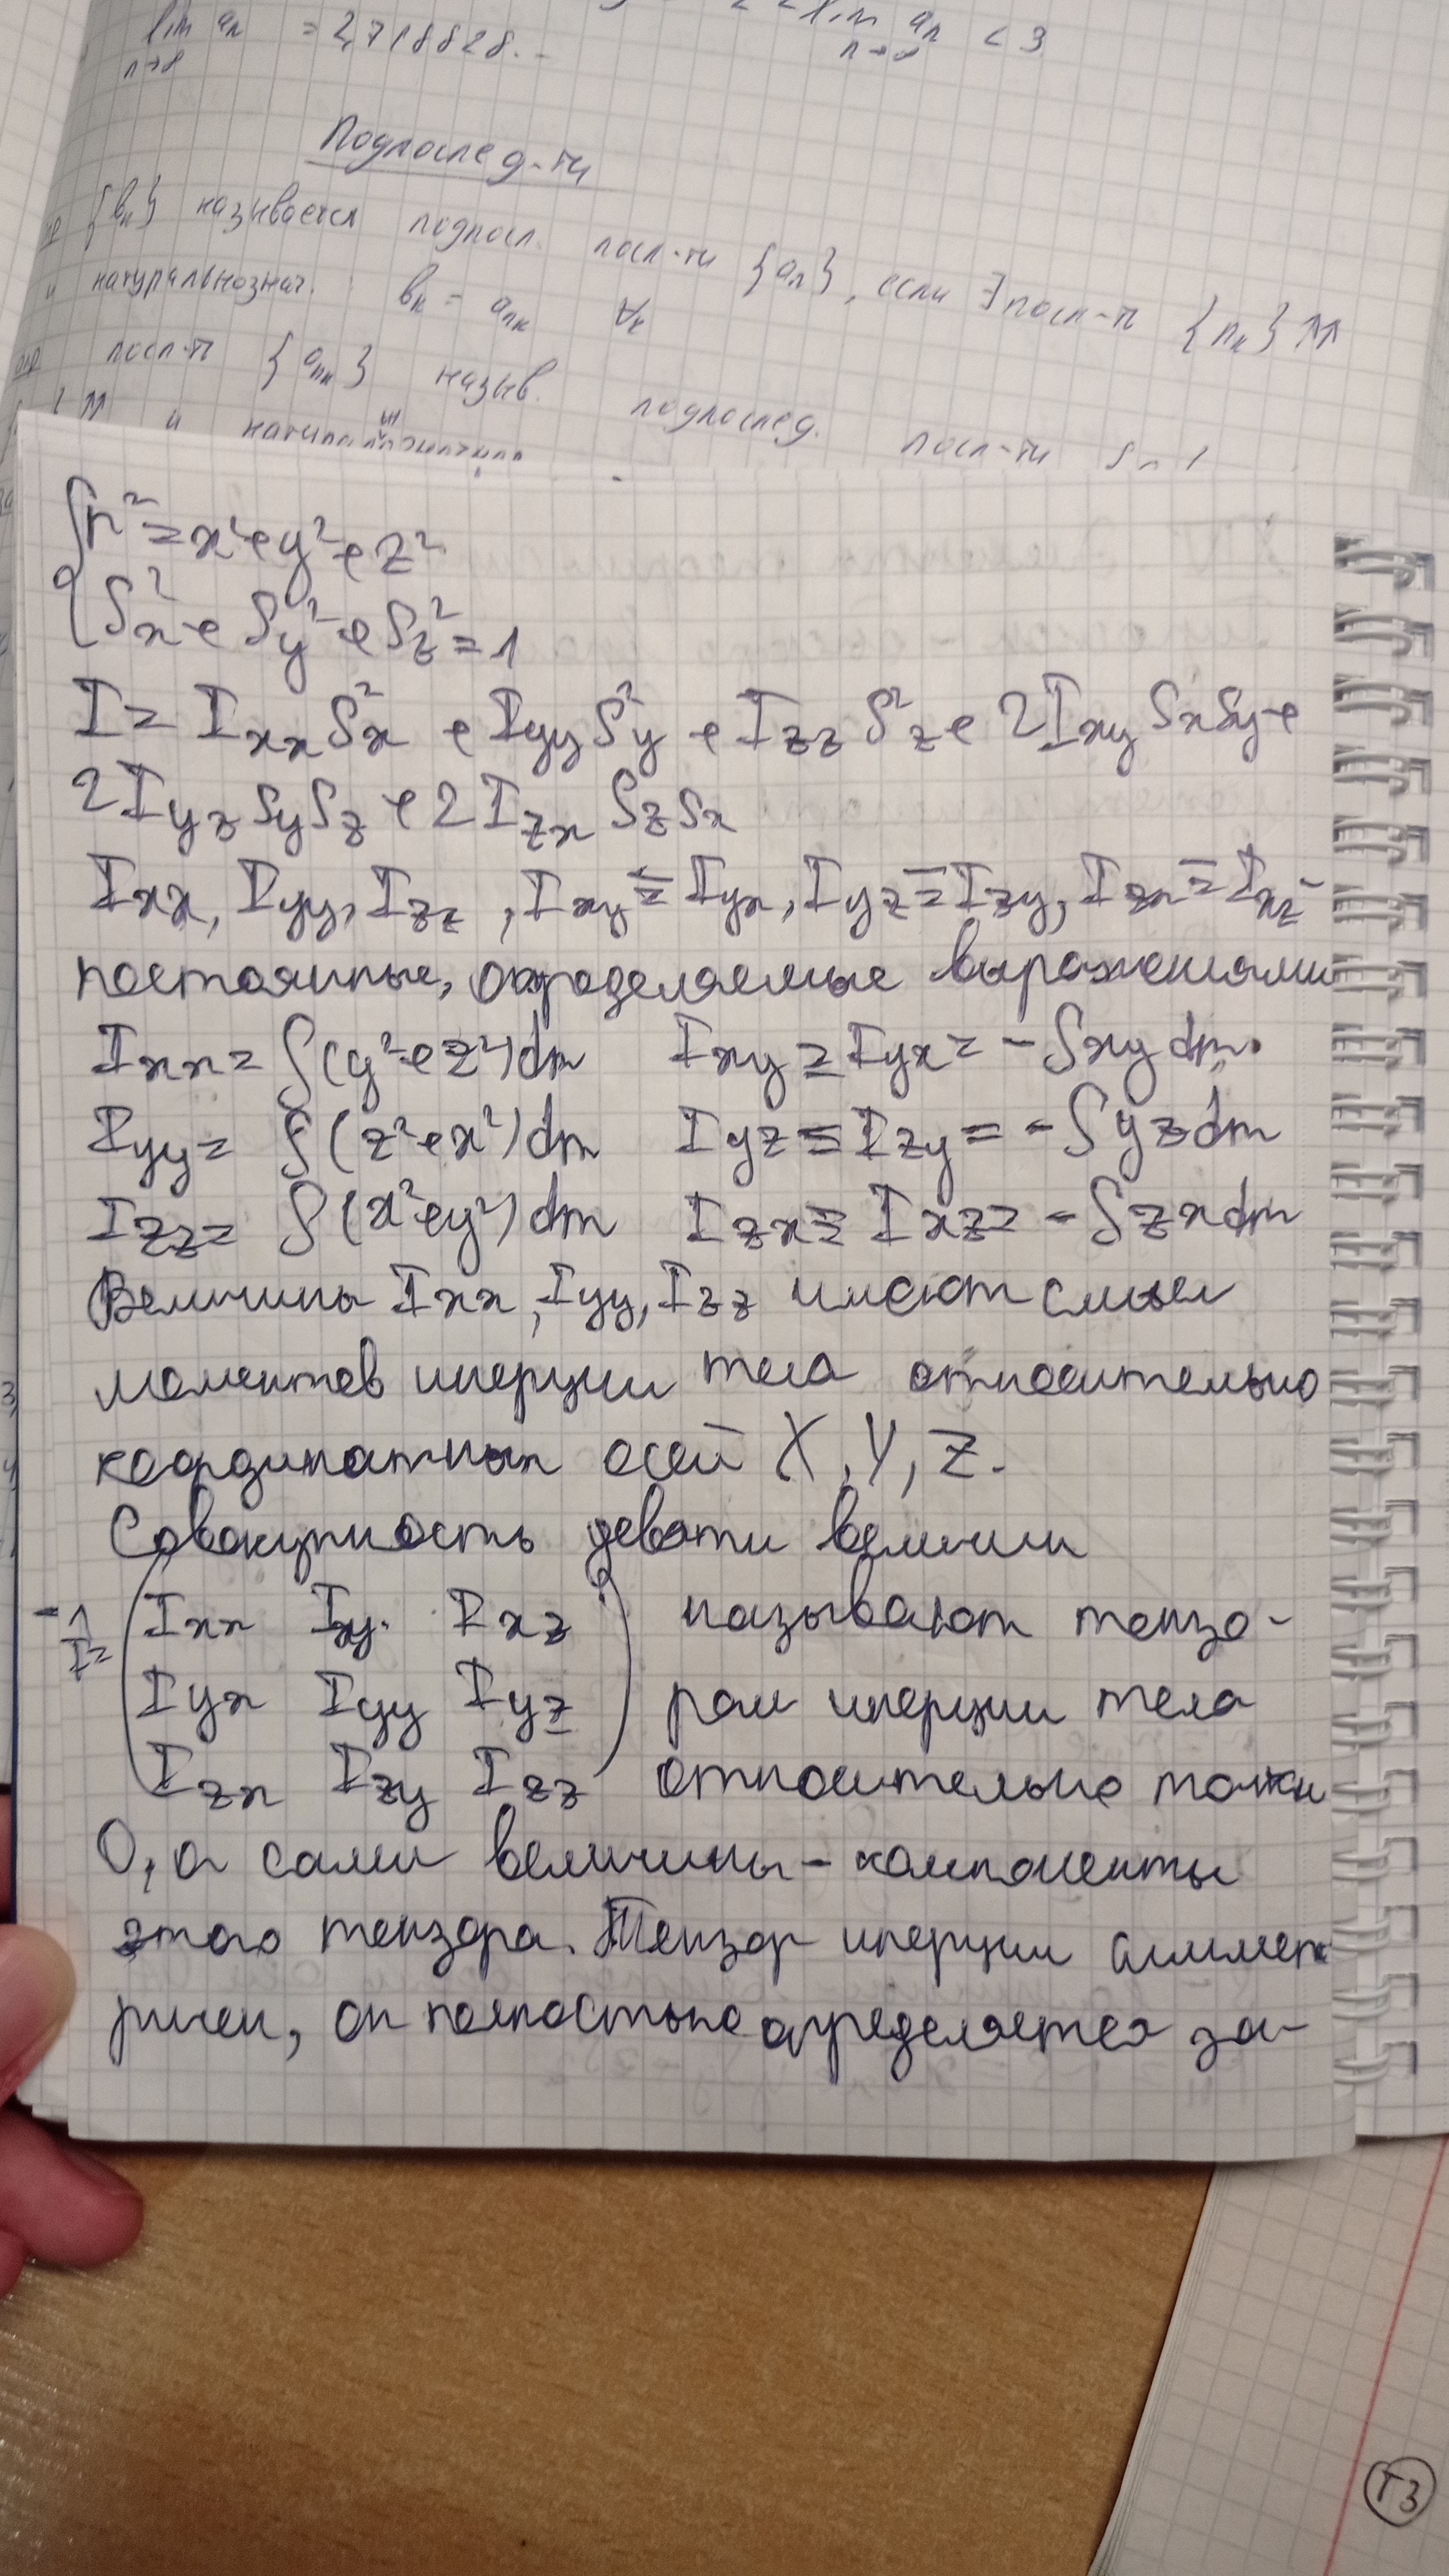 lim aₙ = 2,718828...
n→∞
lim aₙ < 3
n→∞
Подпослед-ти
{bₖ} называется подпосл. посл-ти {aₙ}, если ∃ посл-ть {nₖ} ↑↑
и натуральнознач. : bₖ = aₙₖ ∀ₖ
посл-ть {aₙₖ} назыв. подпослед. посл-ти
↑↑ и
{ r² = x² + y² + z²
{ Sx² + Sy² + Sz² = 1
I = Ixx Sx² + Iyy Sy² + Izz Sz² + 2Ixy SxSy +
2Iyz SySz + 2Izx SzSx
Ixx, Iyy, Izz, Ixy = Iyx, Iyz = Izy, Izx = Ixz -
постоянные, определяемые выражениями
Ixx = ∫(y² + z²)dm Ixy = Iyx = -∫xydm.
Iyy = ∫(z² + x²)dm Iyz = Izy = -∫yzdm
Izz = ∫(x² + y²)dm Izx = Ixz = -∫zxdm
Величины Ixx, Iyy, Izz имеют смысл
моментов инерции тела относительно
координатных осей X, Y, Z.
Совокупность девяти величин
Î = ( Ixx Ixy Ixz ) называют тензо-
( Iyx Iyy Iyz ) ром инерции тела
( Izx Izy Izz ) относительно точки
O, а сами величины - компоненты
этого тензора. Тензор инерции симмет
ричен, он полностью определяется за-
T3